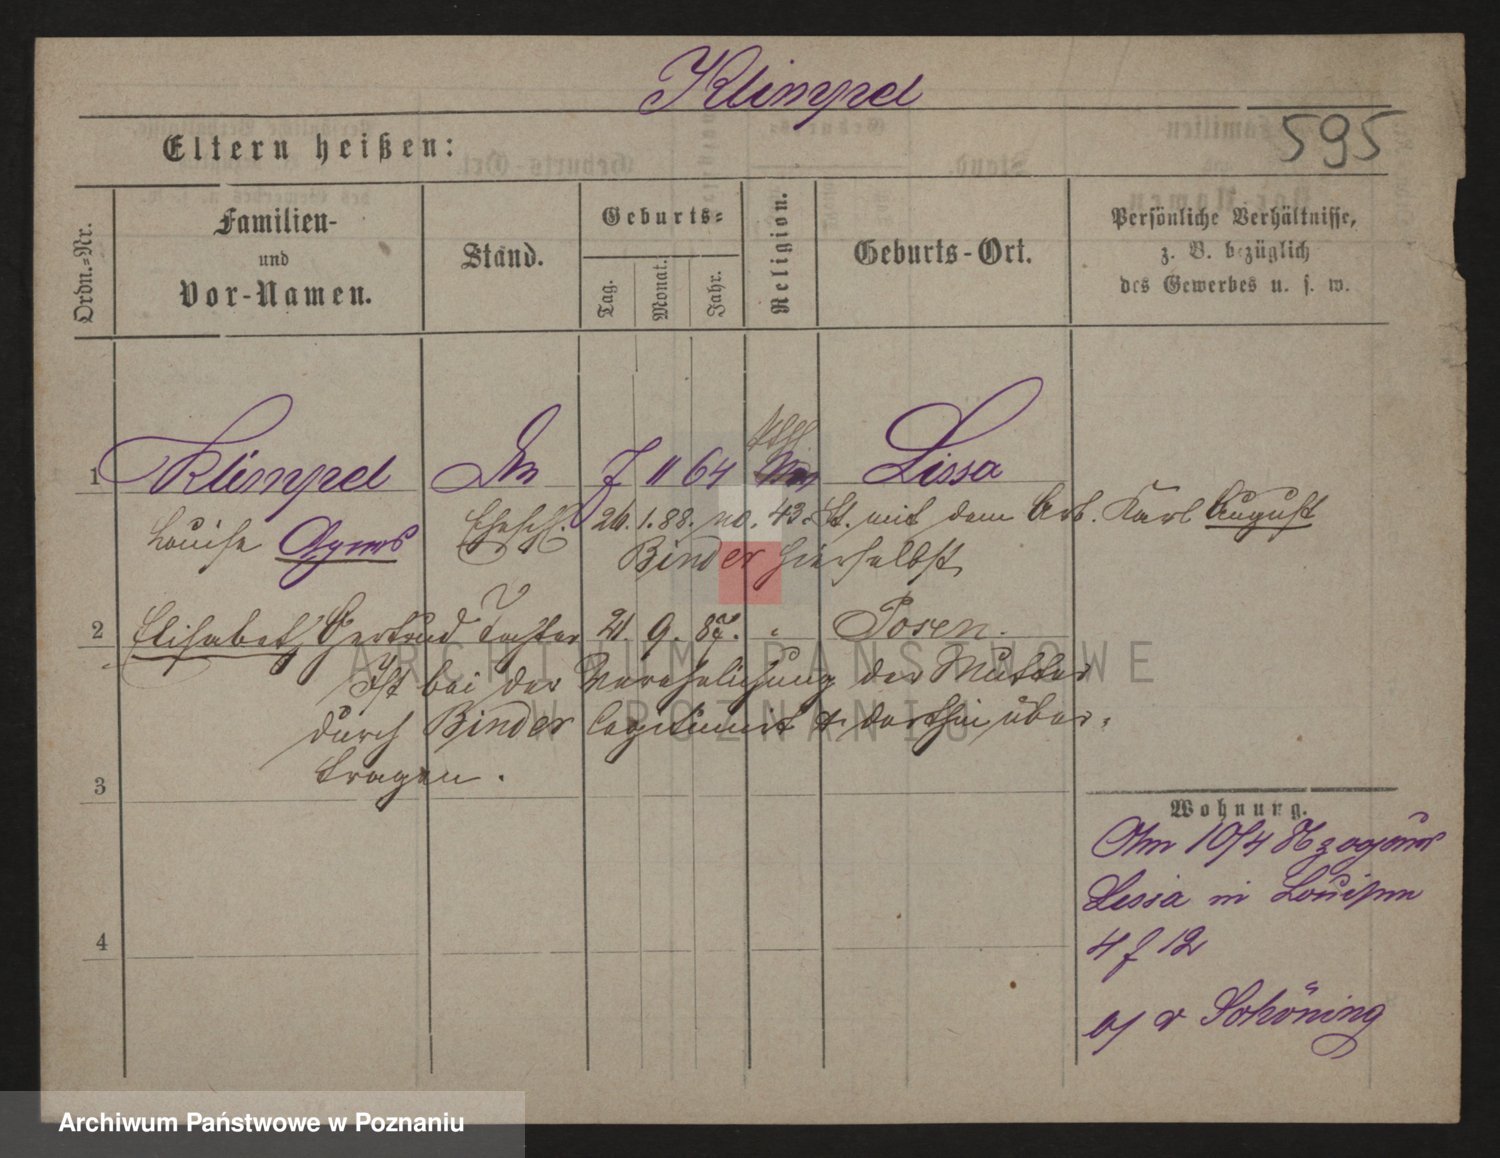 Klimpel
595
Eltern heißen:
Ordn.-Nr.
Familien-
und
Vor-Namen.
Stand.
Geburts-
Tag.
Monat.
Jahr.
Religion.
Geburts-Ort.
Persönliche Verhältnisse,
z. B. bezüglich
des Gewerbes u. s. w.
1 Klimpel 7 11 64 kth Lissa
Louise Agnes Ehesch. 26. 1. 88. no. 43. St. mit dem Arb. Karl August
Binder hierselbst
2 Elisabeth Gertrud Tochter 21. 9. 87. " Posen.
Ist bei der Verehelichung der Mutter
durch Binder legitimirt u. dorthin über-
tragen.
3
4
Wohnung.
Am 10/4 86 zog aus
Lissa in Louisen
4 f 12
b/ v Schöning
ARCHIWUM PAŃSTWOWE
W POZNANIU
Archiwum Państwowe w Poznaniu